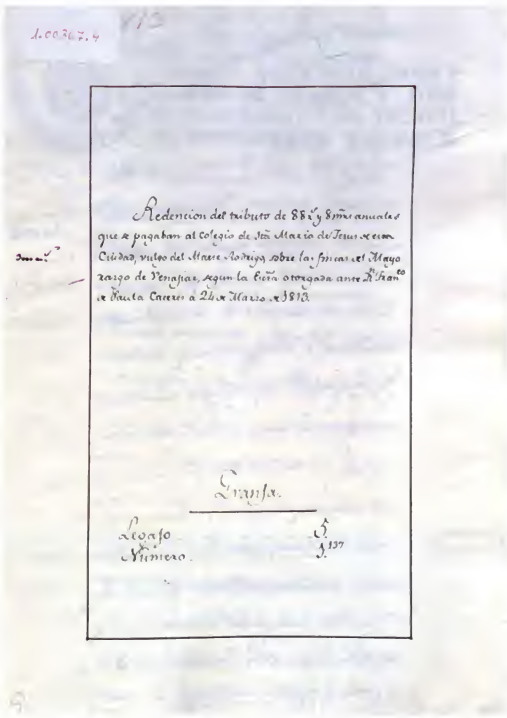 1.00367.4
813
Redencion del tributo de 88 r.s y 8 mrs anuales
que se pagaban al Colegio de Sta Maria de Jesus de esta
Ciudad, vulgo del Maese Rodrigo, sobre las fincas del Mayo
razgo de Penaflar, segun la Escra otorgada ante Dn Franco
de Paula Caceres á 24 de Marzo de 1813.
Granja.
Legajo. 5.
Número. 1.137